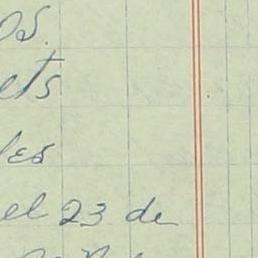 os.
ets
les
el 23 de